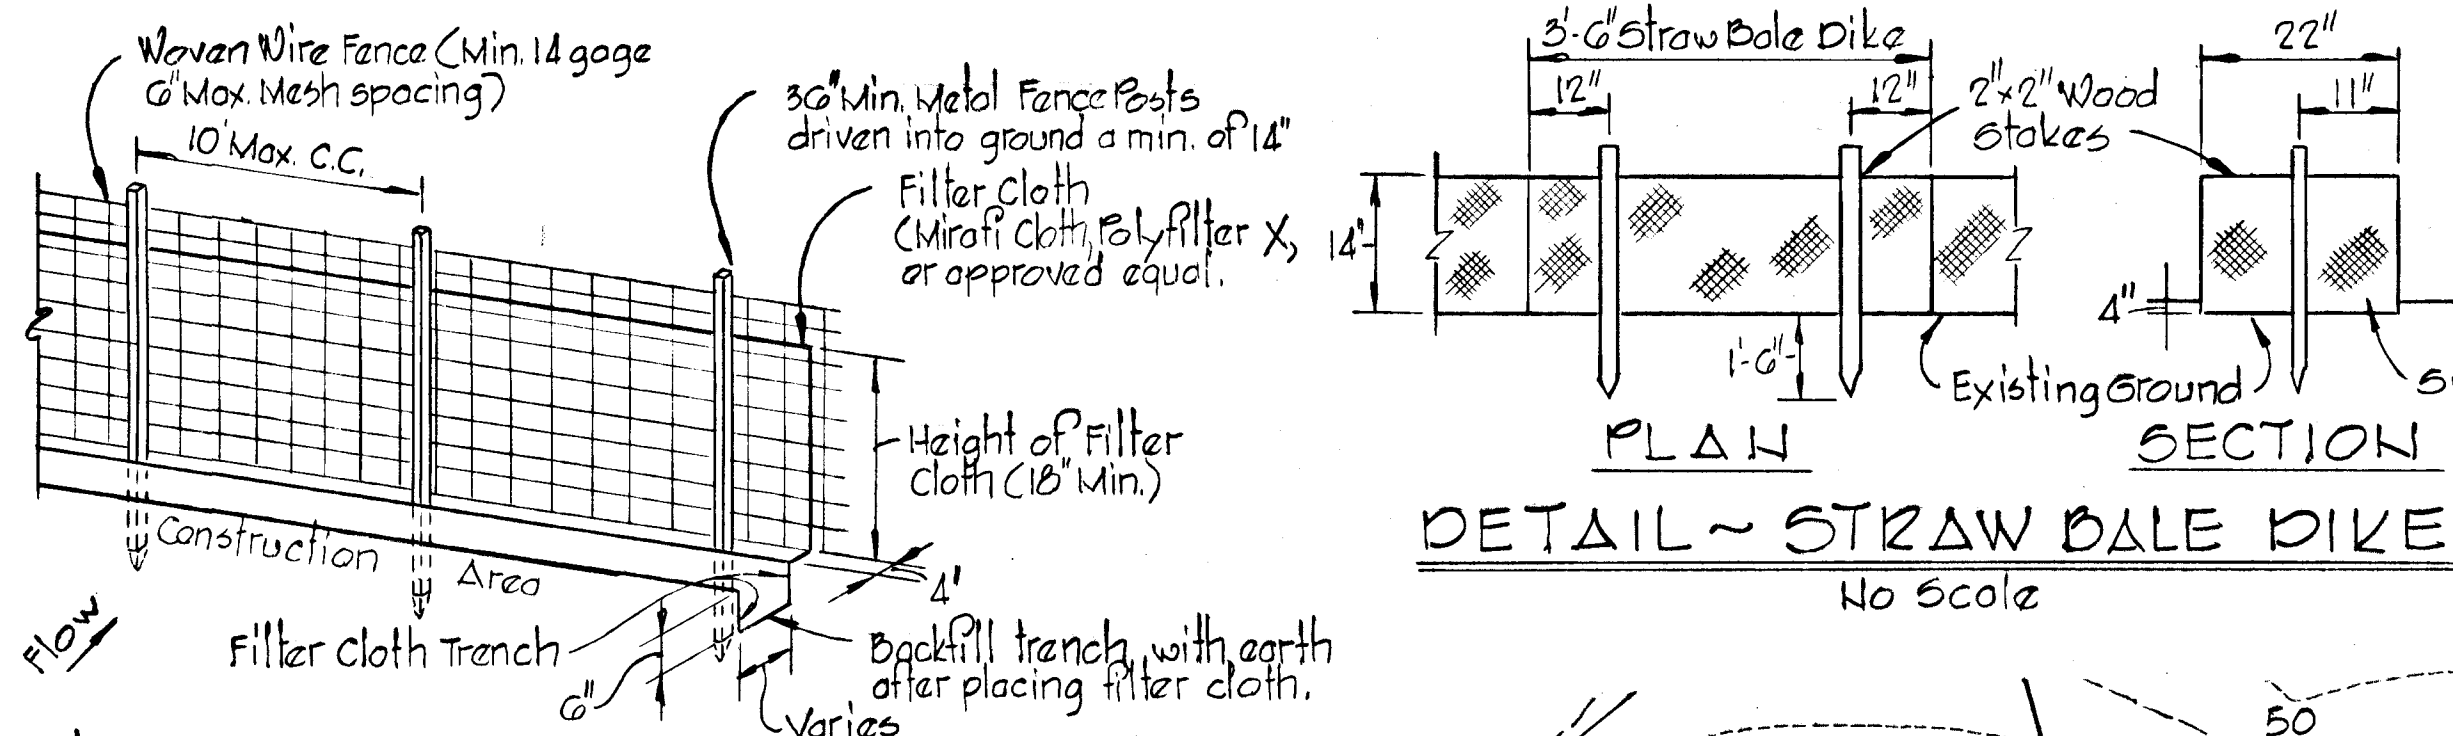 Woven Wire Fence (Min. 14 gage
6" Max. Mesh spacing)
10' Max. C.C.
36" Min. Metal Fence Posts
driven into ground a min. of 14"
Filter Cloth
(Mirafi Cloth, Polyfilter X,
or approved equal.
Height of Filter
Cloth (18" Min.)
4"
Construction Area
Flow
Filter Cloth Trench
6"
Varies
Backfill trench with earth
after placing filter cloth.
3'-6" Straw Bale Dike
12"
12"
2"x2" Wood
Stakes
22"
11"
14"
4"
1'-6"
Existing Ground
PLAN
SECTION
DETAIL ~ STRAW BALE DIKE
No Scale
50